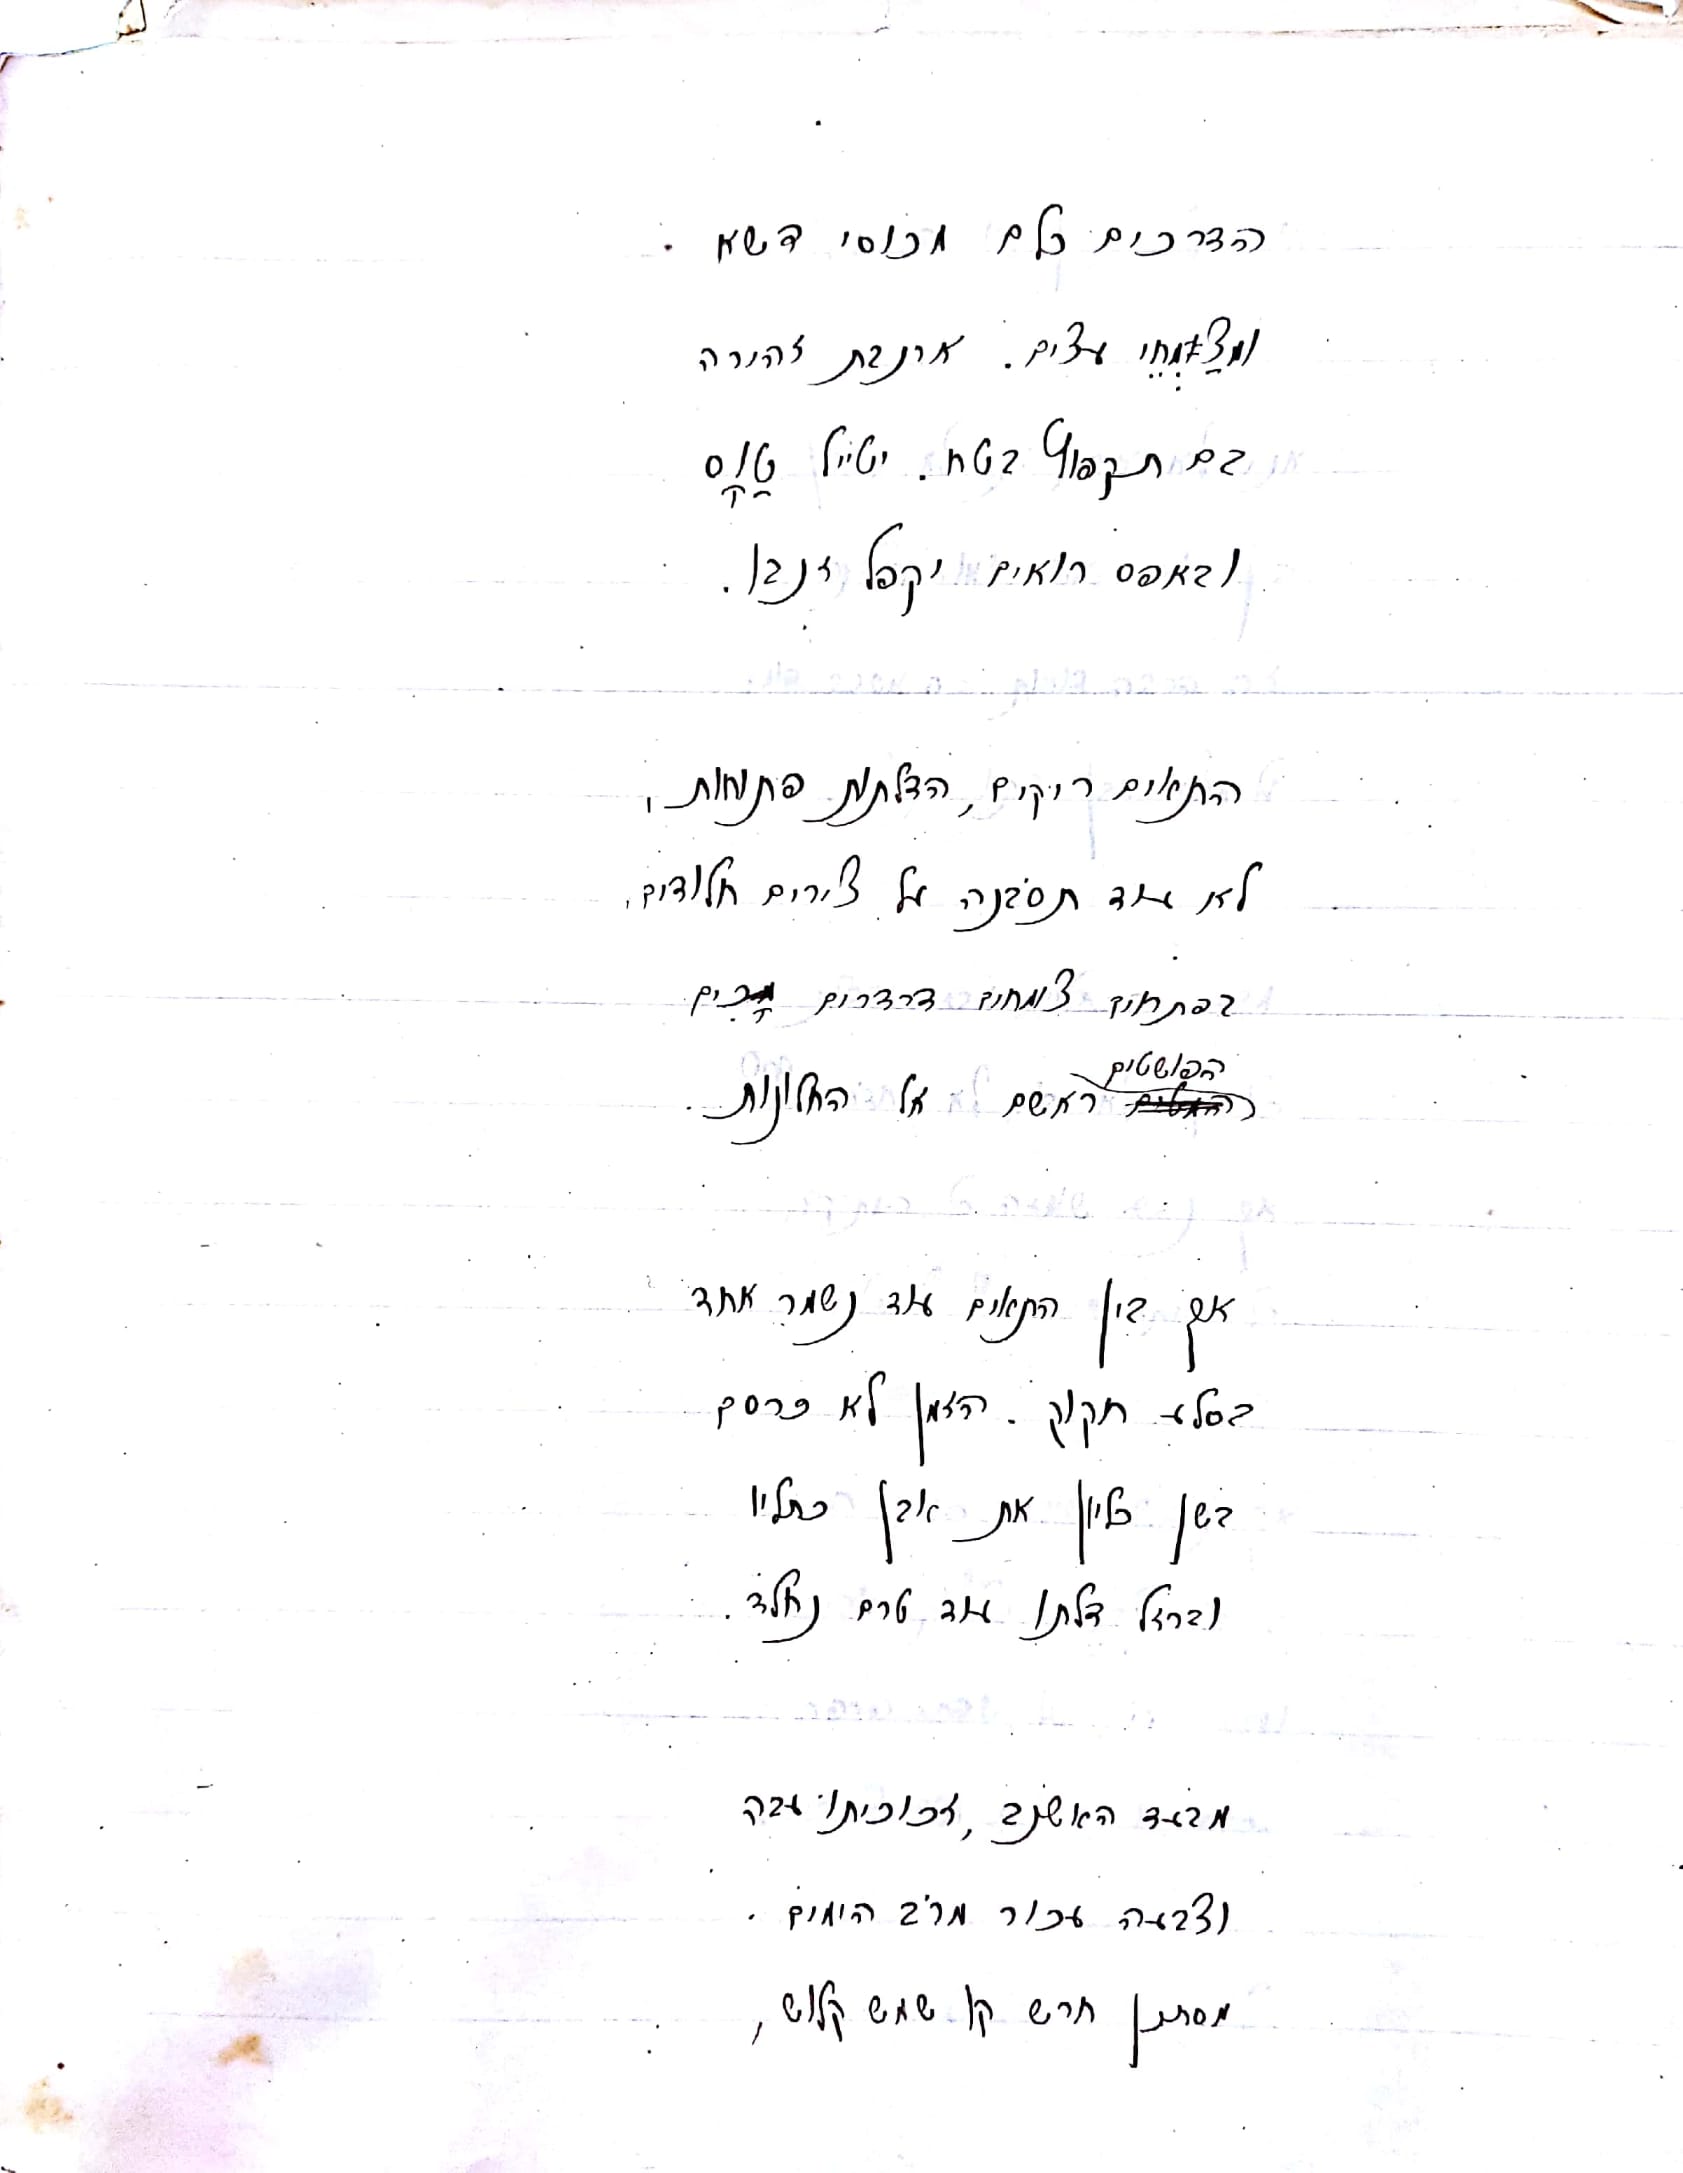 הדרכים כלם מכוסי דשא.
ומצֻמְחֵי עצים. ארנבת זהירה
בם תקפוץ בטח. יטייל טַוָּס
ובאפס רואים יקפל זנבו.
התאים ריקים, הדלתות פתוחות,
לא עוד תסֹבנה על צירים חלודים,
בפתחיהן צומחים דרדרים
הפושטים ראשם אל החלונות.
אך בין התאים עוד נשמר אחד
בסלע חקוק. הזמן לא כרסם
בשן כליון את אבן כתליו
וברזל דלתו עוד טרם נחלד.
מבעד האשנב, זכוכיתו עבה
וצבעה עכור מרֹב הימים.
מסתנן חרש קו שמש קלוש,